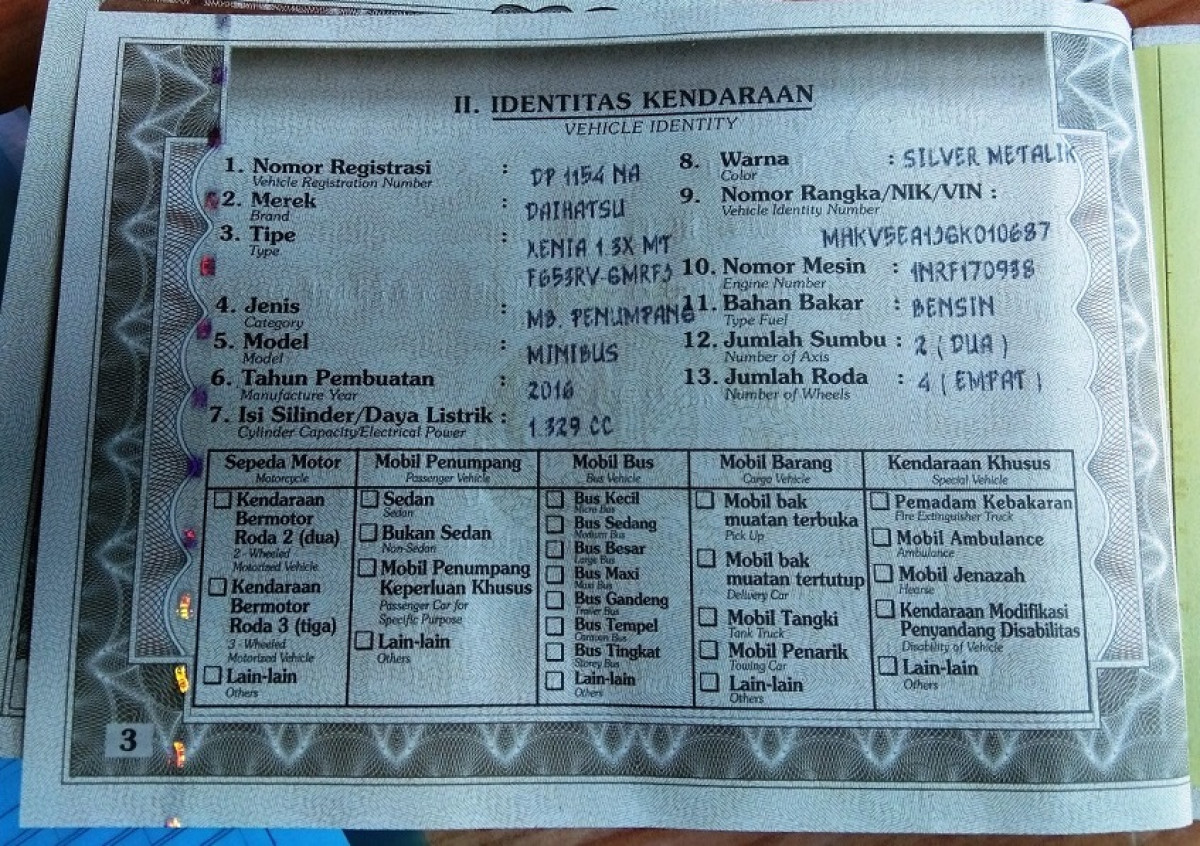 II. IDENTITAS KENDARAAN
VEHICLE IDENTITY
1. Nomor Registrasi : DP 1154 NA
Vehicle Registration Number
2. Merek : DAIHATSU
Brand
3. Tipe : XENIA 1.3X MT
Type
F653RV-GMRFJ
4. Jenis : MB. PENUMPANG
Category
5. Model : MINIBUS
Model
6. Tahun Pembuatan : 2016
Manufacture Year
7. Isi Silinder/Daya Listrik : 1.329 CC
Cylinder Capacity/Electrical Power
8. Warna : SILVER METALIK
Color
9. Nomor Rangka/NIK/VIN :
Vehicle Identity Number
MHKV5EA1JGK010687
10. Nomor Mesin : 1NRF170938
Engine Number
11. Bahan Bakar : BENSIN
Type Fuel
12. Jumlah Sumbu : 2 ( DUA )
Number of Axis
13. Jumlah Roda : 4 ( EMPAT )
Number of Wheels
Sepeda Motor
Motorcycle
Kendaraan
Bermotor
Roda 2 (dua)
2 - Wheeled
Motorized Vehicle
Kendaraan
Bermotor
Roda 3 (tiga)
3 - Wheeled
Motorized Vehicle
Lain-lain
Others
Mobil Penumpang
Passenger Vehicle
Sedan
Sedan
Bukan Sedan
Non-Sedan
Mobil Penumpang
Keperluan Khusus
Passenger Car for
Specific Purpose
Lain-lain
Others
Mobil Bus
Bus Vehicle
Bus Kecil
Micro Bus
Bus Sedang
Medium Bus
Bus Besar
Large Bus
Bus Maxi
Maxi Bus
Bus Gandeng
Trailer Bus
Bus Tempel
Caravan Bus
Bus Tingkat
Storey Bus
Lain-lain
Others
Mobil Barang
Cargo Vehicle
Mobil bak
muatan terbuka
Pick Up
Mobil bak
muatan tertutup
Delivery Car
Mobil Tangki
Tank Truck
Mobil Penarik
Towing Car
Lain-lain
Others
Kendaraan Khusus
Special Vehicle
Pemadam Kebakaran
Fire Extinguisher Truck
Mobil Ambulance
Ambulance
Mobil Jenazah
Hearse
Kendaraan Modifikasi
Penyandang Disabilitas
Disability of Vehicle
Lain-lain
Others
3